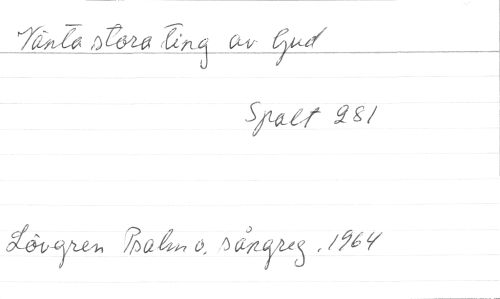 Vänta stora ting av Gud
Spalt 281
Lövgren Psalm o. sångreg. 1964